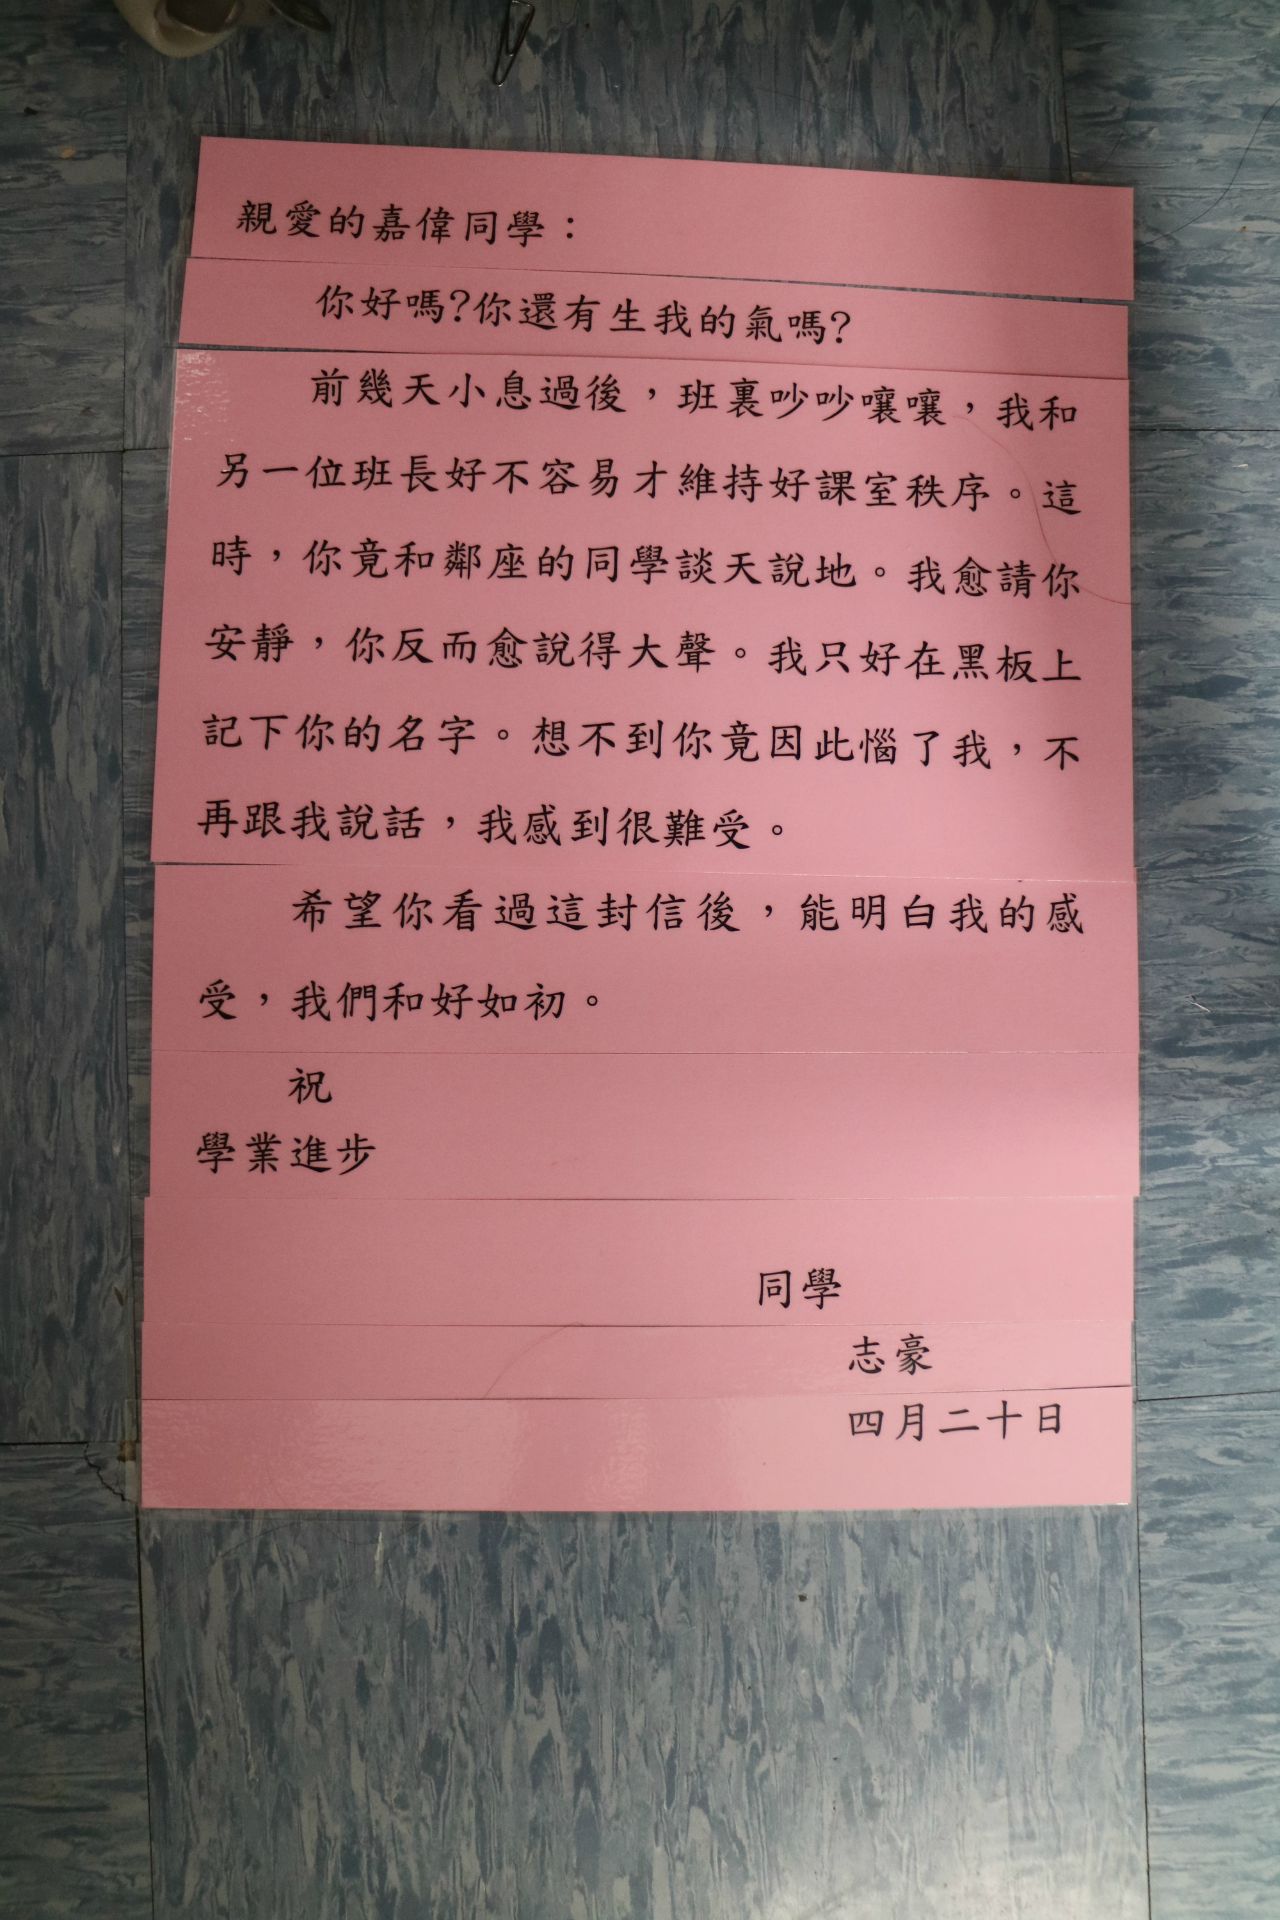 親愛的嘉偉同學：
你好嗎?你還有生我的氣嗎?
前幾天小息過後，班裏吵吵嚷嚷，我和
另一位班長好不容易才維持好課室秩序。這
時，你竟和鄰座的同學談天說地。我愈請你
安靜，你反而愈說得大聲。我只好在黑板上
記下你的名字。想不到你竟因此惱了我，不
再跟我說話，我感到很難受。
希望你看過這封信後，能明白我的感
受，我們和好如初。
祝
學業進步
同學
志豪
四月二十日